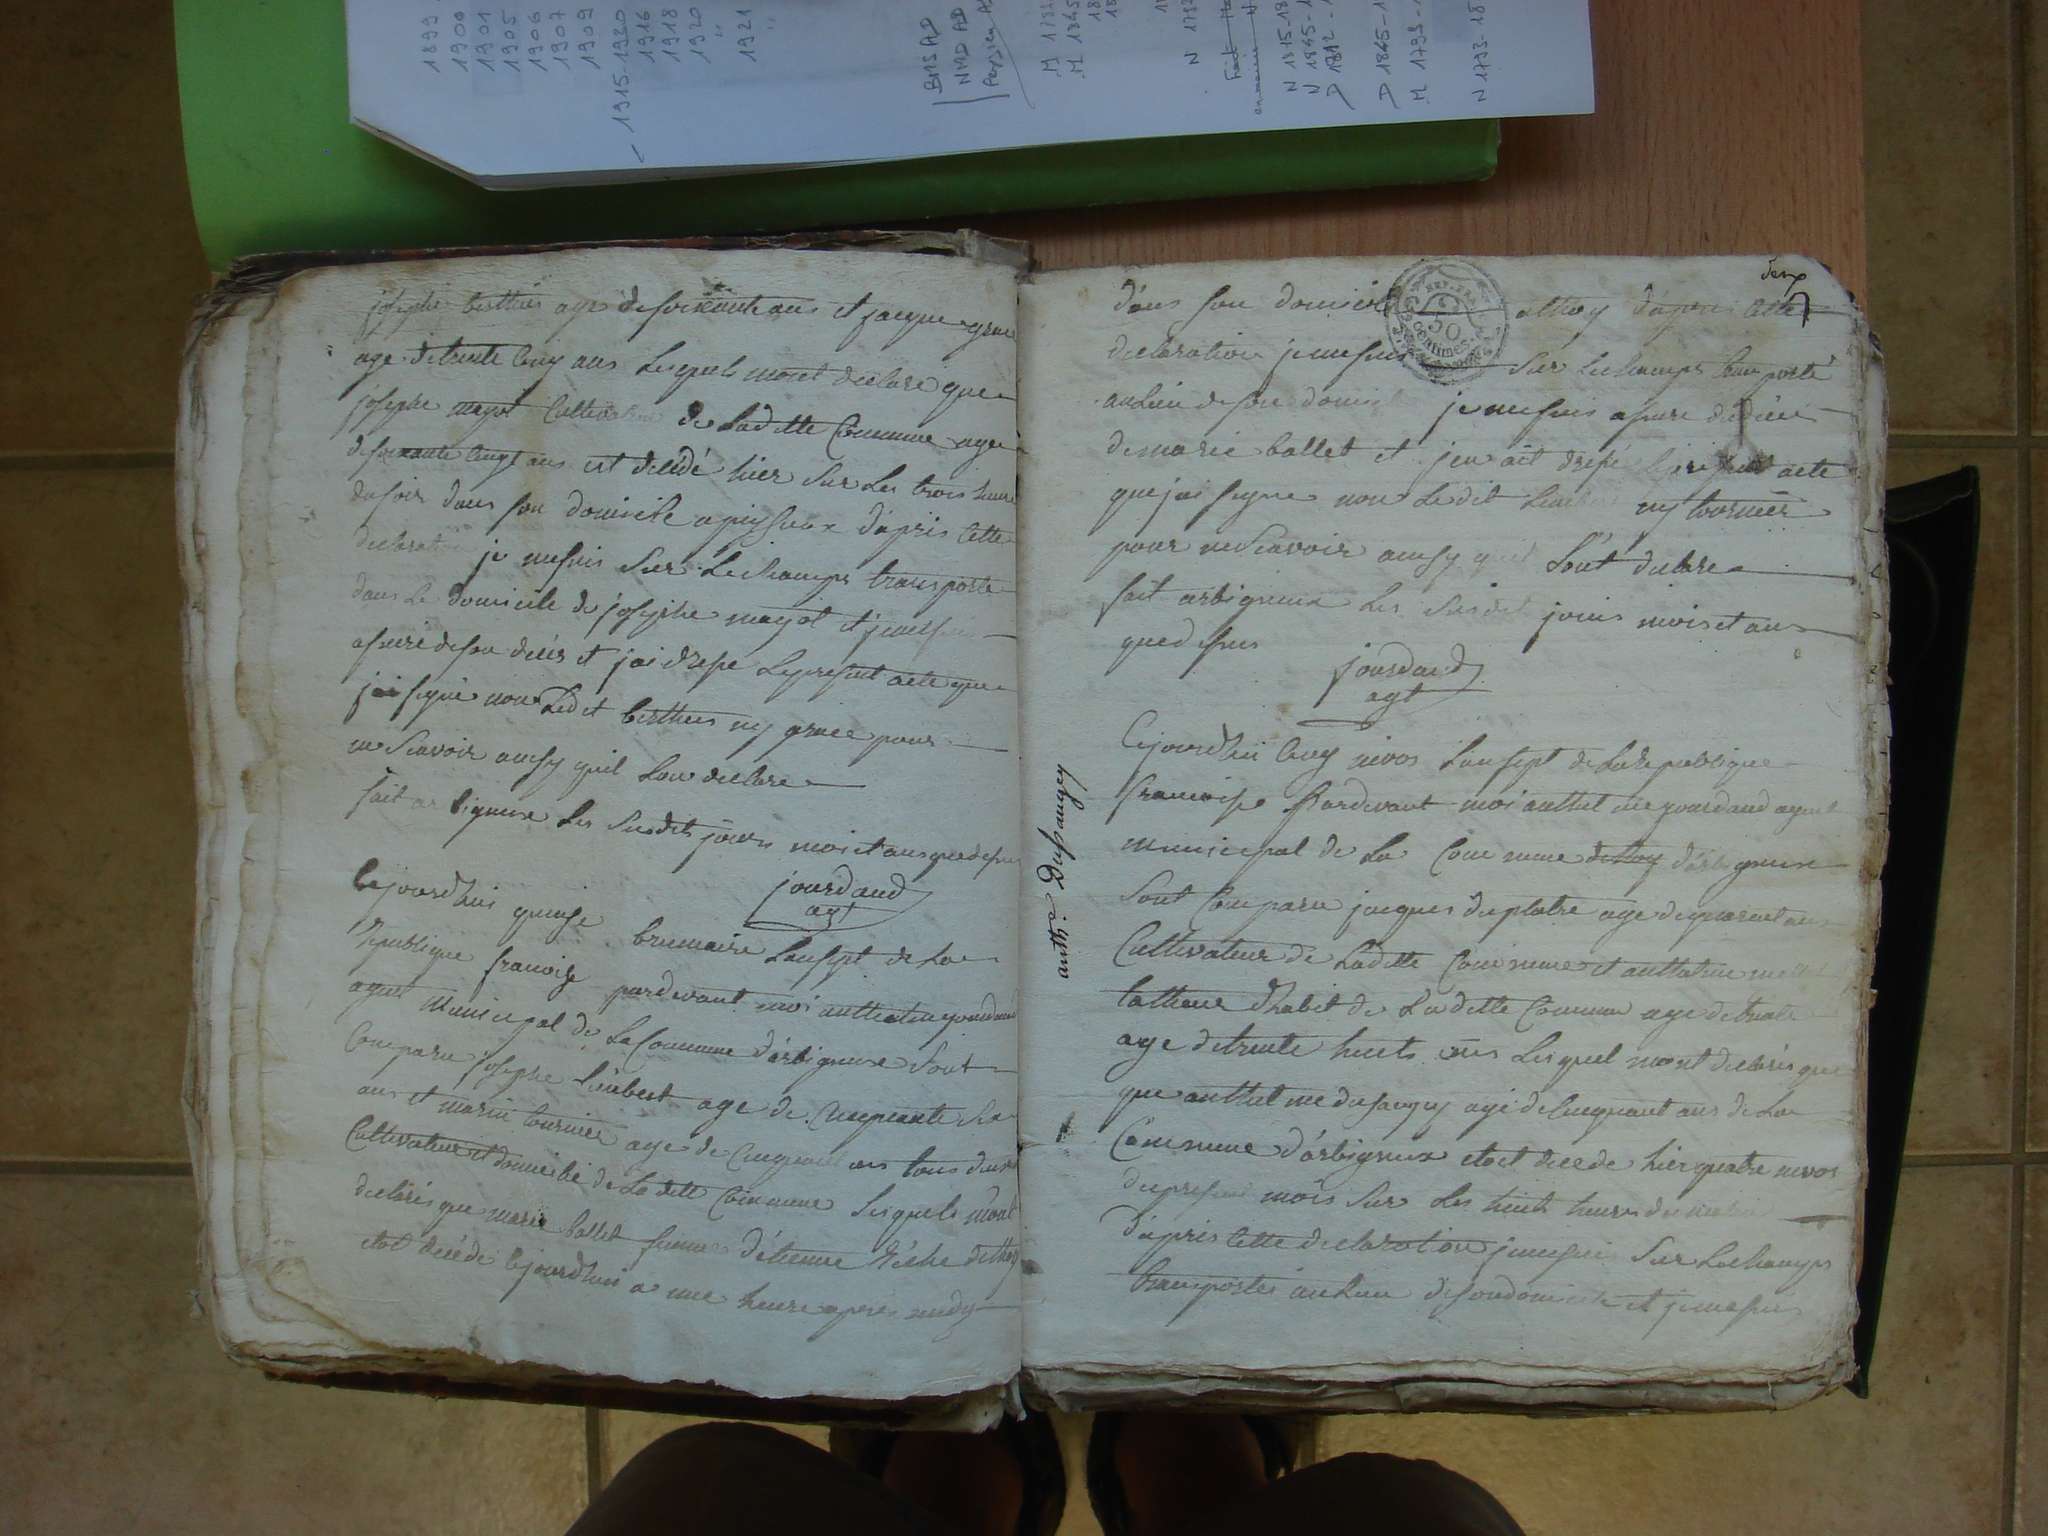 1899
1900
1901
1905
1906
1907
1909
1915-1920
1916
1918
1920
1921
BMS AD
NMD AD
M 1793
M 1845
N 1792
N 1815-18
N 1845-1
D 1812-1
D 1845-1
M 1793-1
N 1793-18
josephe berthies age de soixante ans et jacque grace
age de trente cinq ans lesquels mont declare que
josephe mayot cultivateur de laditte commune age
de soixante cinqt ans est decedé hier sur les trois heure
du soir dans son domicile a peysieux dápris cette
declaration je mesuis sur lechamps transporte
dans le domicile de josephe mayot et jemesuis
asuré deson décés et jai drese lepresent acte que
jai signé non ledit berthies ny grace pour
ne scavoir ainsy quil lon declare
fait arbigneux les susdits jours mois et ans que desus
jourdand
agt
Cejourdhui quinse brumaire lansept de la
republique francoise pardevant moi anthelme jourdand
agent municipal de la commune dárbigneux sont
comparu josephe limbert age de cinquante
ans et marin tournier age de cinquant ans tous deux
cultivateur et domicilié de laditte commune lesquels mont
declarés que marie ballet femme détienne de thoy
etoit decédé cejourdhui a une heure apres midy
deux
7
REP. FRA.
50
centimes
dans son domicile athoy dápris cette
declaration jemesuis sur lechamps transporté
aulieu de son domicile je mesuis asuré du décée
demarie ballet et jen ait dresé lepresent acte
que jai signe non ledit limbert ny tournier
pour ne scavoir ainsy quil lont declare
fait arbigneux les susdit jours mois et ans
que desus
jourdand
agt
anth.e Dussaugey
Cejourdhui cinq nivos lansept de larepublique
francoise pardevant moi anthelme jourdand agent
municipal de la commune dethoy dárbigneux
sont comparu jacques duplatre age de quarant ans
cultivateur de laditte commune et anthelme
tallieur dhabit de laditte commune age de trente
age de trente huits ans lesquel mont declarés que
que anthelme dusaugey agé de cinquant ans de la
commune dárbigneux etoit decede hier quatre nivos
du present mois sur les huit heures du matin
dápris cette declaration jemesuis sur lechamps
transportés aulieu desondomicile et jemesuis